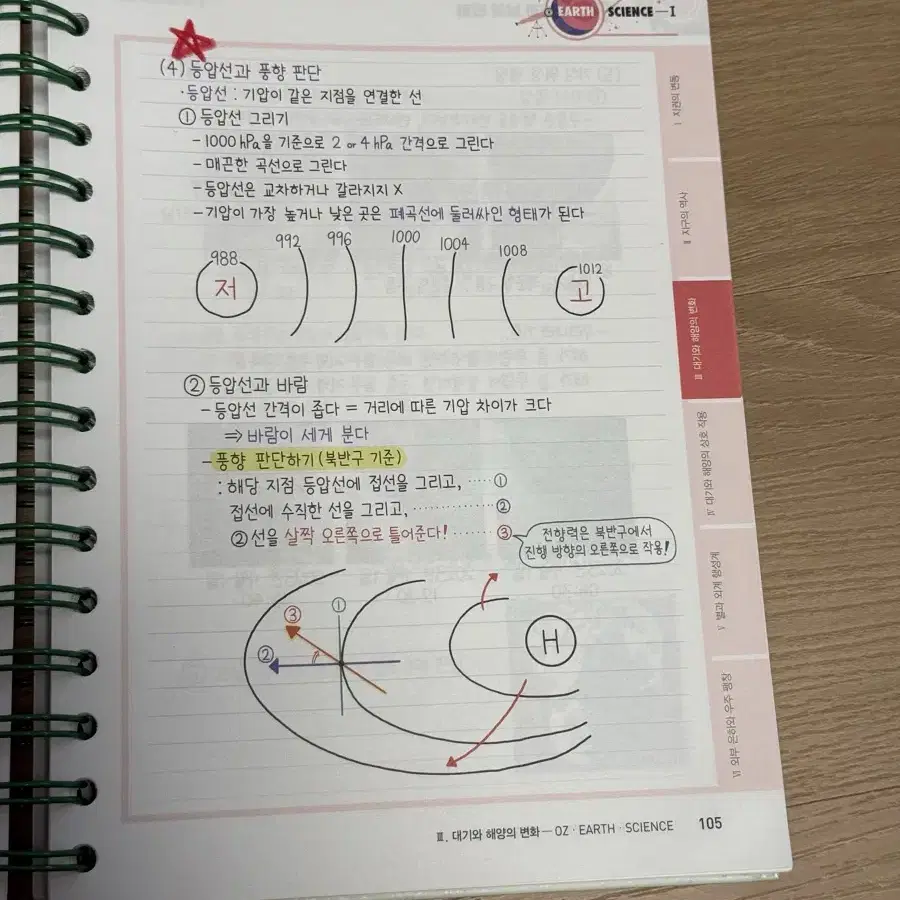 EARTH SCIENCE—I
(4) 등압선과 풍향 판단
·등압선 : 기압이 같은 지점을 연결한 선
① 등압선 그리기
- 1000 hPa을 기준으로 2 or 4 hPa 간격으로 그린다
- 매끈한 곡선으로 그린다
- 등압선은 교차하거나 갈라지지 X
- 기압이 가장 높거나 낮은 곳은 폐곡선에 둘러싸인 형태가 된다
988 992 996 1000 1004 1008 1012
저 고
② 등압선과 바람
- 등압선 간격이 좁다 = 거리에 따른 기압 차이가 크다
⇒ 바람이 세게 분다
- 풍향 판단하기 (북반구 기준)
: 해당 지점 등압선에 접선을 그리고, ····· ①
접선에 수직한 선을 그리고, ·············· ②
② 선을 살짝 오른쪽으로 틀어준다! ······· ③
전향력은 북반구에서
진행 방향의 오른쪽으로 작용!
① ② ③
H
Ⅰ 지권의 변동
Ⅱ 지구의 역사
Ⅲ 대기와 해양의 변화
Ⅳ 대기와 해양의 상호 작용
Ⅴ 별과 외계 행성계
Ⅵ 외부 은하와 우주 팽창
Ⅲ. 대기와 해양의 변화 — OZ · EARTH · SCIENCE 105